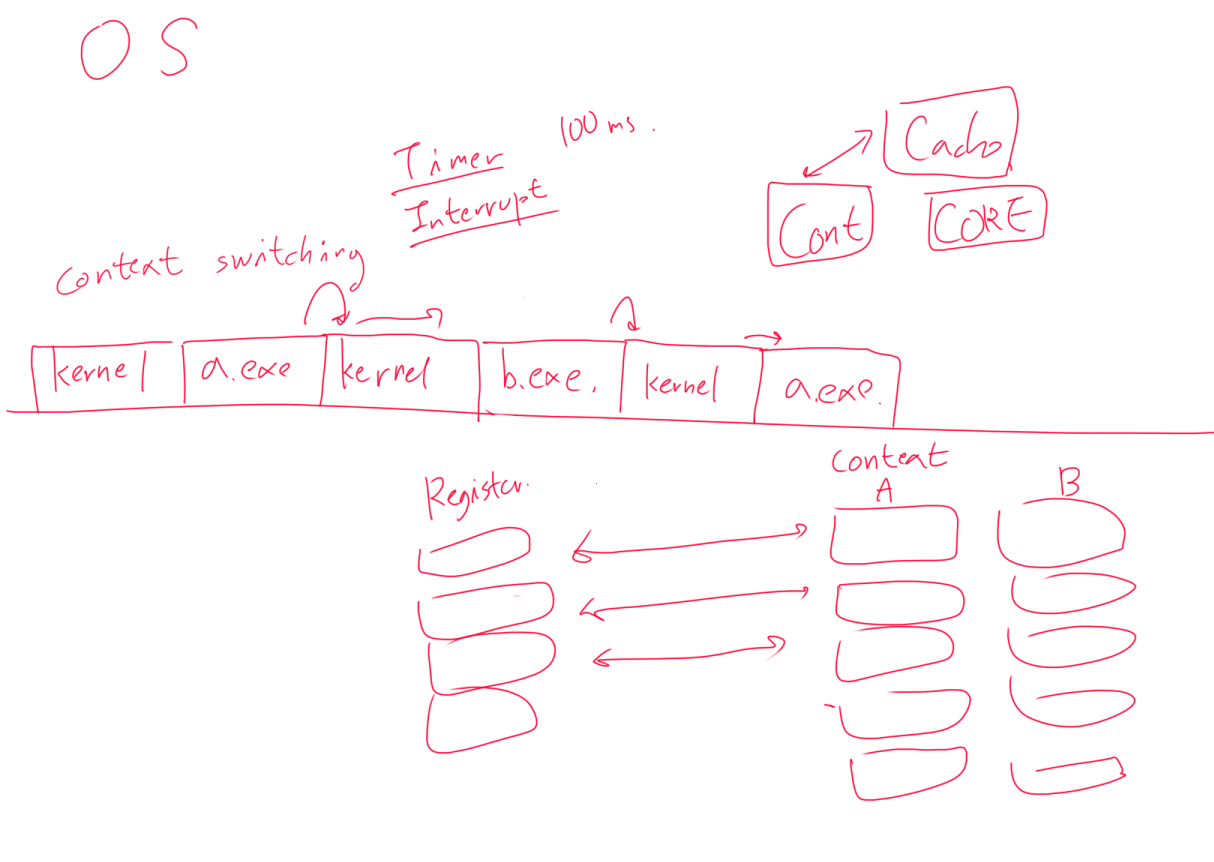 OS
Timer 100ms.
Interrupt
Cache
Cont CORE
Context switching
kernel a.exe kernel b.exe. kernel a.exe.
Register. Context
A B